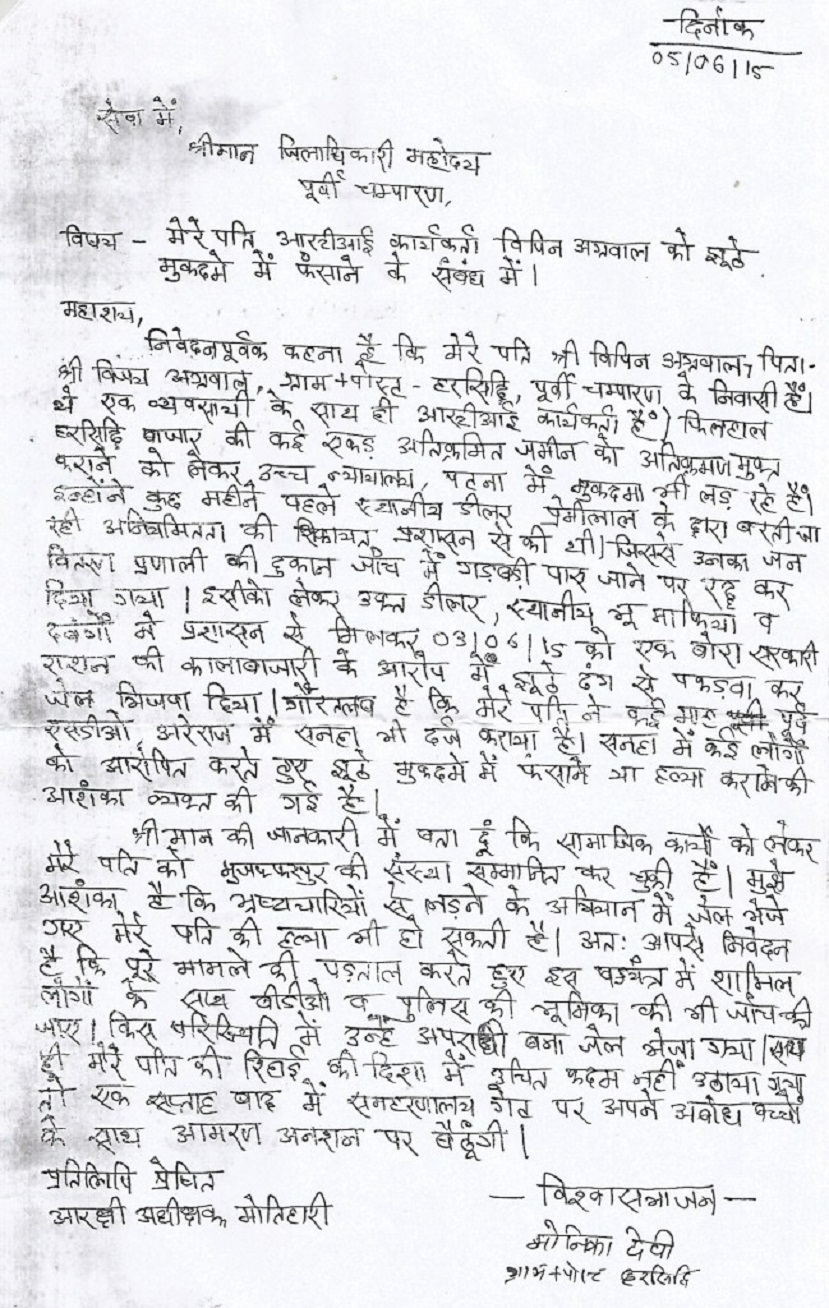 दिनांक
05/06/15
सेवा में,
श्रीमान जिलाधिकारी महोदय
पूर्वी चम्पारण,
विषय - मेरे पति आरटीआई कार्यकर्ता विपिन अग्रवाल को झूठे
मुकदमे में फंसाने के संबंध में।
महाशय,
निवेदनपूर्वक कहना है कि मेरे पति श्री विपिन अग्रवाल, पिता-
श्री विजय अग्रवाल, ग्राम+पोस्ट - हरसिद्धि, पूर्वी चम्पारण के निवासी हैं।
ये एक व्यवसायी के साथ ही आरटीआई कार्यकर्ता हैं। फिलहाल
हरसिद्धि बाजार की कई एकड़ अतिक्रमित जमीन को अतिक्रमण मुक्त
कराने को लेकर उच्च न्यायालय, पटना में मुकदमा भी लड़ रहे हैं।
इन्होंने कुछ महीने पहले स्थानीय डीलर प्रेमीलाल के द्वारा बरती जा
रही अनियमितता की शिकायत प्रशासन से की थी। जिससे उनका जन
वितरण प्रणाली की दुकान जाँच में गड़बड़ी पाए जाने पर रद्द कर
दिया गया। इसीको लेकर उक्त डीलर, स्थानीय भू माफिया व
दबंगों ने प्रशासन से मिलकर 03/06/15 को एक बोरा सरकारी
राशन की कालाबाजारी के आरोप में झूठे ढंग से पकड़वा कर
जेल भिजवा दिया। गौरतलब है कि मेरे पति ने कई माह पूर्व
एसडीओ, अरेराज में सनहा भी दर्ज कराया है। सनहा में कई लोगों
को आरोपित करते हुए झूठे मुकदमे में फंसाने या हत्या कराने की
आशंका व्यक्त की गई है।
श्रीमान की जानकारी में बता दूं कि सामाजिक कार्यों को लेकर
मेरे पति को मुजफ्फरपुर की संस्था सम्मानित कर चुकी है। मुझे
आशंका है कि भ्रष्टाचारियों से लड़ने के अभियान में जेल भेजे
गए मेरे पति की हत्या भी हो सकती है। अत: आपसे निवेदन
है कि पूरे मामले की पड़ताल करते हुए इस षडयंत्र में शामिल
लोगों के साथ बीडीओ व पुलिस की भूमिका की भी जाँच की
जाए। किस परिस्थिति में उन्हें अपराधी बना जेल भेजा गया। साथ
ही मेरे पति की रिहाई की दिशा में उचित कदम नहीं उठाया गया
तो एक सप्ताह बाद में समाहरणालय गेट पर अपने अबोध बच्चों
के साथ आमरण अनशन पर बैठूंगी।
प्रतिलिपि प्रेषित
आरक्षी अधीक्षक मोतिहारी
— विश्वासभाजन —
मोनिका देवी
ग्राम+पोस्ट हरसिद्धि